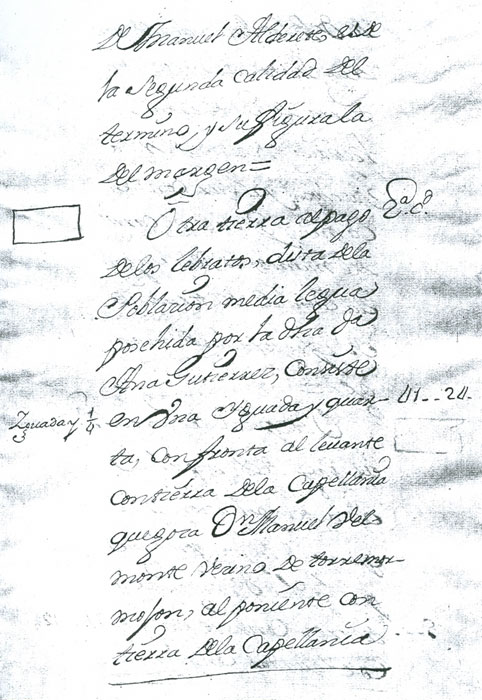 De Manuel Alderete, es de
la segunda calidad del
termino, y su figura la
del margen =
Otra tierra al pago 2ª. cd.
de los lebratos, dista de la
Poblacion media legua
posehida por la dha Dª
Ana Gutierrez, Consiste
Yguada y 1/4 en Una Yguada y quar- 41..24.
ta, confronta al levante
con tierra de la Capellania
que goza Dn. Manuel del
monte Vecino de torremor-
mojon, al poniente con
tierra de la Capellania